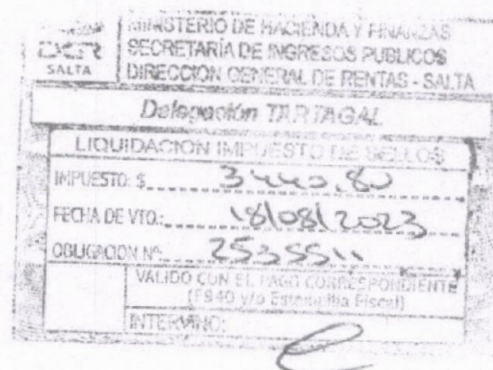 MINISTERIO DE HACIENDA Y FINANZAS
DGR SALTA
SECRETARÍA DE INGRESOS PUBLICOS
DIRECCION GENERAL DE RENTAS - SALTA
Delegación TARTAGAL
LIQUIDACION IMPUESTO DE SELLOS
IMPUESTO: $ 3440.80
FECHA DE VTO.: 18/08/2023
OBLIGACION Nº: 2535511
VALIDO CON EL PAGO CORRESPONDIENTE
(F940 y/o Estampilla Fiscal)
INTERVINO: